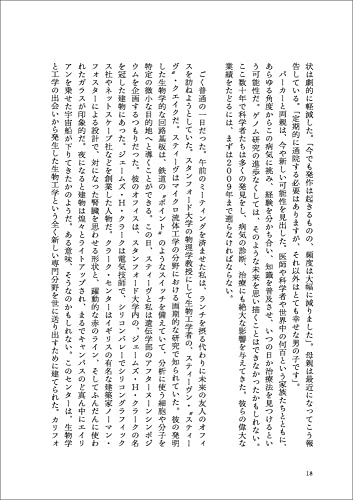 状は劇的に軽減した。「今でも発作は起きるものの、頻度は大幅に減りました」。母親は最近になってこう報
告している。「定期的に通院する必要はありますが、それ以外はとても幸せな男の子です」。
パーカーと両親は、今や新しい可能性を見出した。医師や科学者や世界中の何百という家族たちとともに、
あらゆる角度からこの病気に挑み、経験を分かち合い、知識を普及させ、いつの日か治療法を見つけるとい
う可能性だ。ゲノム研究の進歩なくしては、そのような未来を思い描くことはできなかったかもしれない。
ここ数十年で科学者たちは多くの発見をし、病気の診断、治療にも絶大な影響を与えてきた。彼らの偉大な
業績をたどるには、まずは2009年まで遡らなければならない。
ごく普通の一日だった。午前のミーティングを済ませた私は、ランチを摂る代わりに未来の友人のオフィ
スを訪ねようとしていた。スタンフォード大学の物理学教授にして生物工学者の、スティーヴン・〝スティー
ヴ〟・クエイクだ。スティーヴはマイクロ流体工学の分野における画期的な研究で知られていた。彼の発明
した生物学的な回路基板は、鉄道の〝ポイント〟のようなスイッチを備えていて、分析に使う細胞や分子を
特定の微小な目的地へと導くことができる。この日、スティーヴと私は遺伝学部のアフタヌーンシンポジ
ウムを企画するつもりだった。彼のオフィスは、スタンフォード大学内の、ジェームズ・H・クラークの名
を冠した建物にあった。ジェームズ・H・クラークは電気技師で、シリコンバレーでシリコングラフィック
ス社やネットスケープ社などを創業した人物だ。クラーク・センターはイギリスの有名な建築家ノーマン・
フォスターによる設計で、対になった腎臓を思わせる形状と、躍動的な赤のライン、そしてふんだんに使わ
れたガラスが印象的だ。夜になると建物は煌々とライトアップされ、まるでキャンパスのど真ん中にエイリ
アンを乗せた宇宙船が下りてきたかのようだ。ある意味、そうなのかもしれない。このセンターは、生物学
と工学の出会いから発生した生物工学という全く新しい専門分野を世に送り出すために建てられた。カリフォ
18